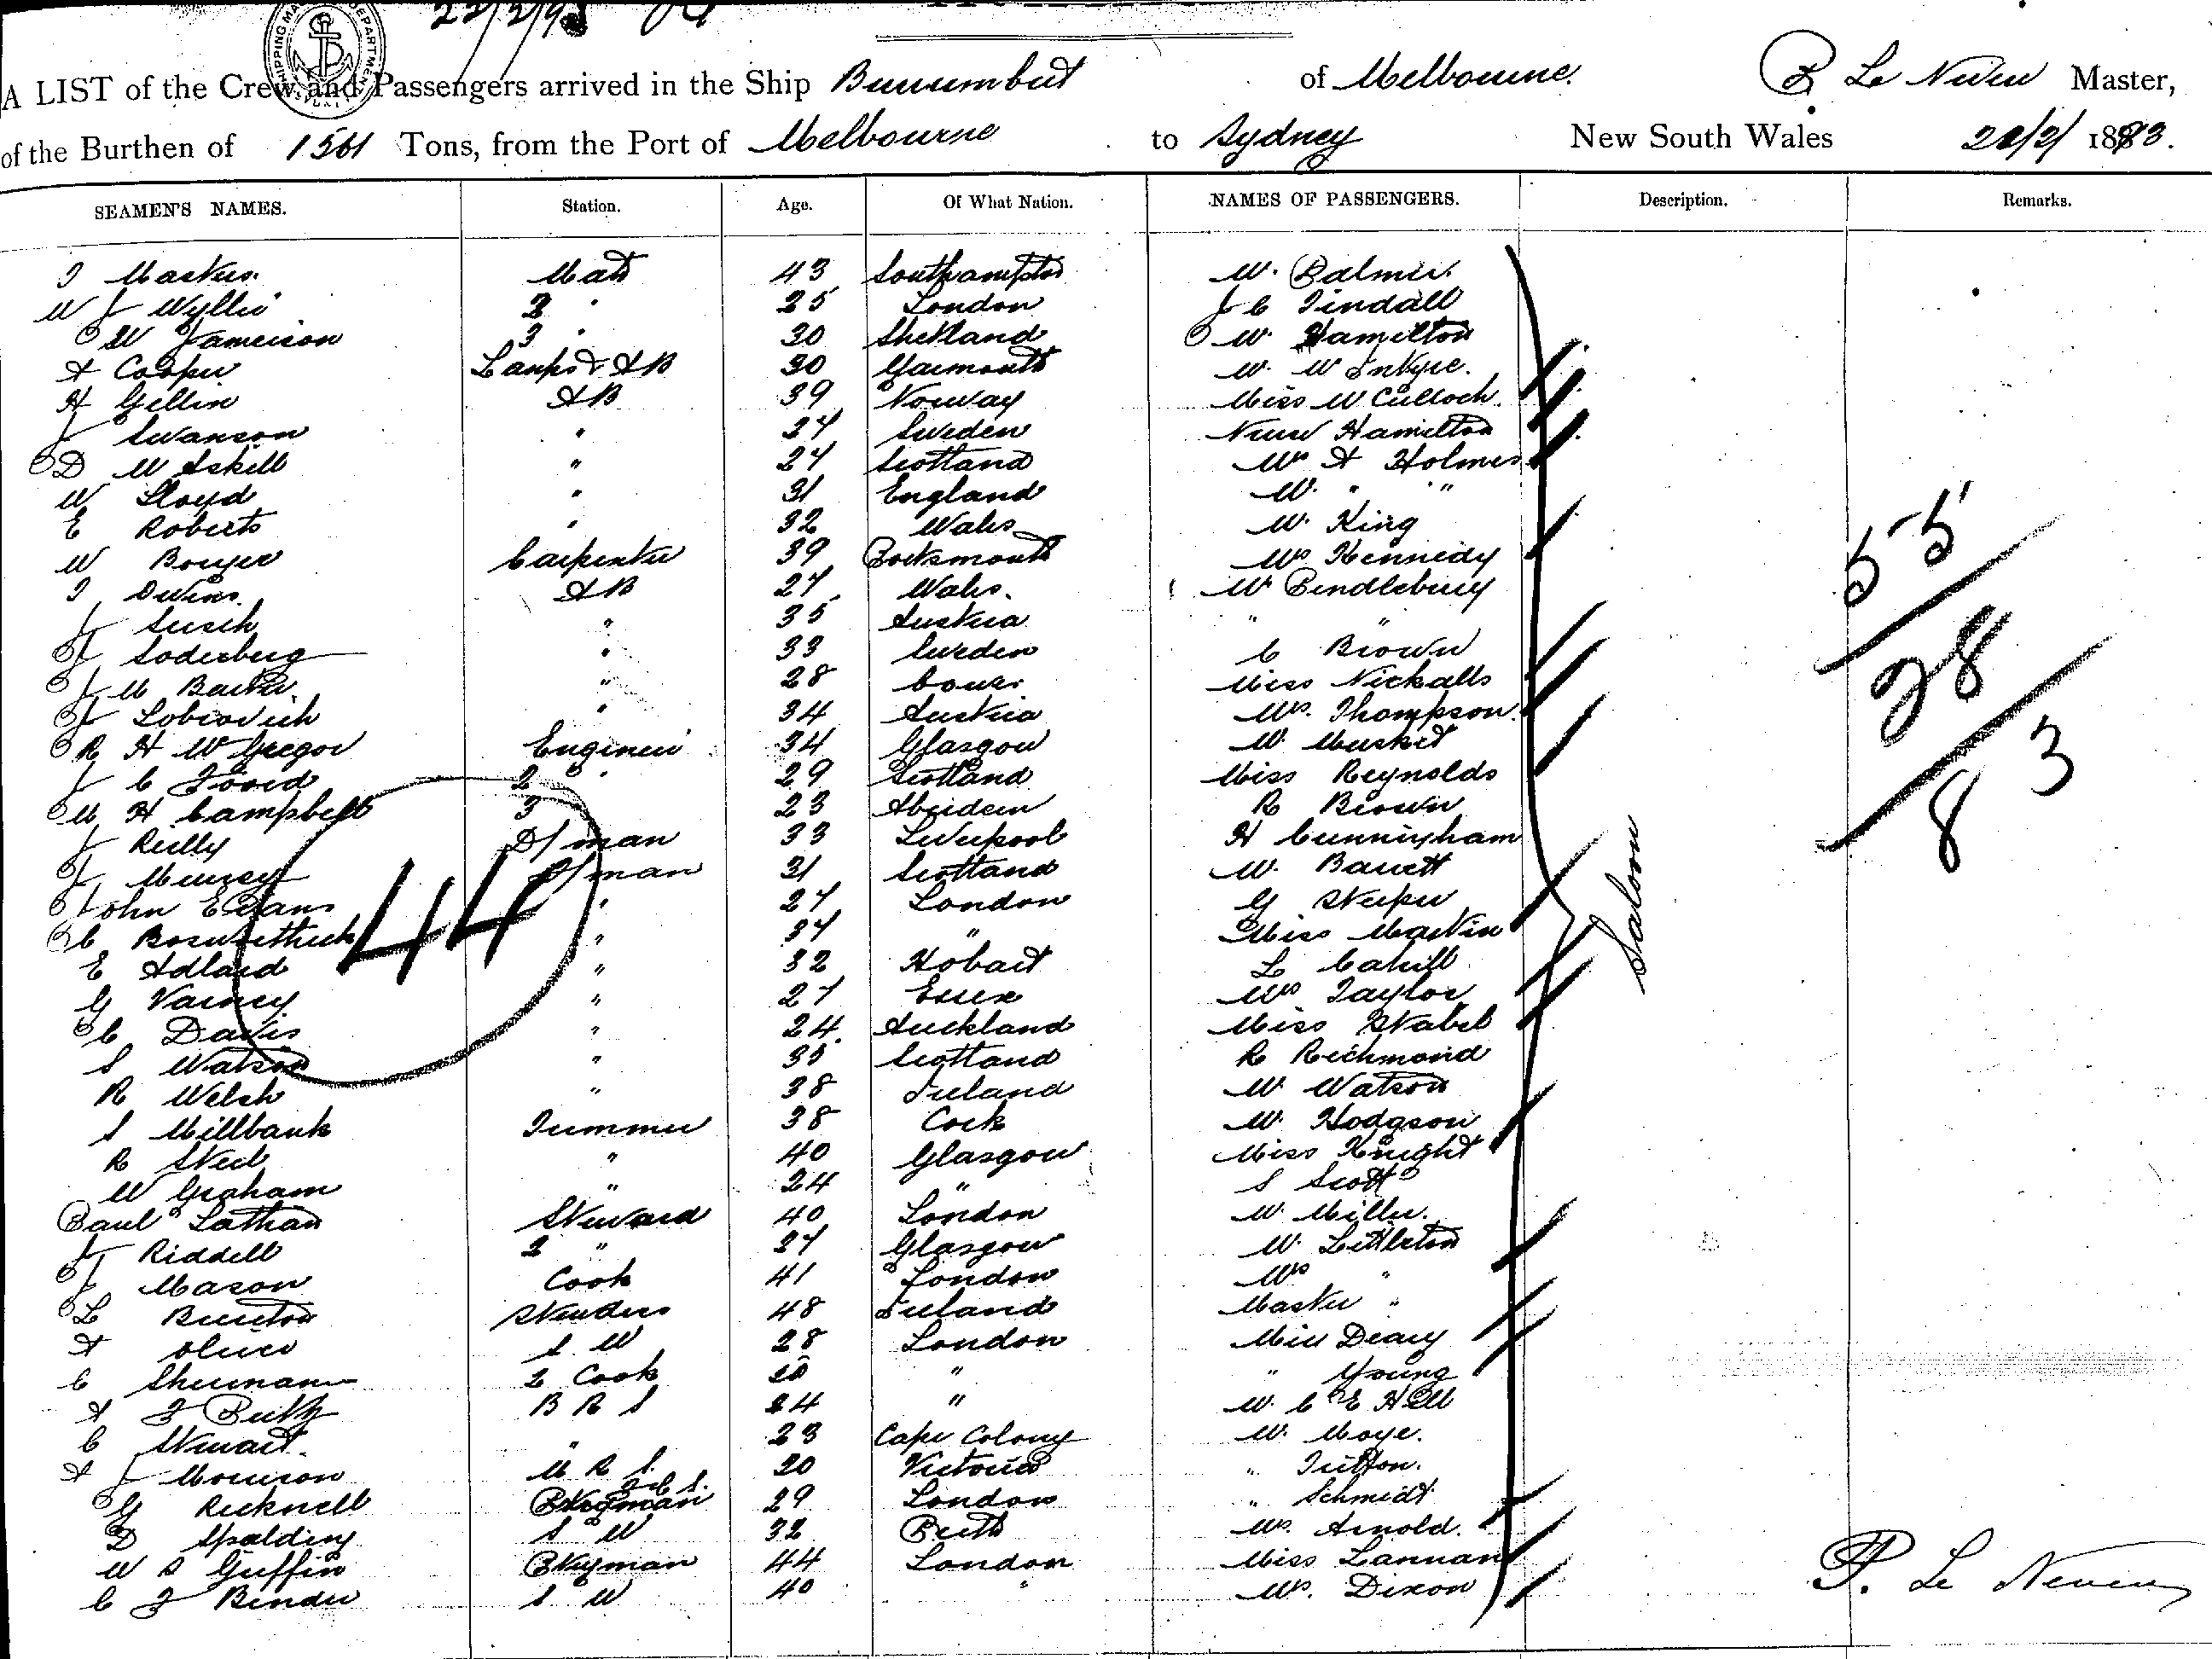 22/2/93
SHIPPING MA DEPARTMENT
A LIST of the Crew and Passengers arrived in the Ship Burrumbeet of Melbourne. P Le Neveu Master,
of the Burthen of 1561 Tons, from the Port of Melbourne to Sydney New South Wales 1893.
SEAMEN'S NAMES. Station. Age. Of What Nation. NAMES OF PASSENGERS. Description. Remarks.
Mate 43 Southampton Mr. Palmer
W J Wyllie 2 " 25 London J C Tindall
W Jameison 3 " 30 Shetland Mr. Hamilton
A Cooper Lamps & AB 30 Yarmouth Mr.
H Gellin AB 39 Norway Miss McCulloch
J Swanson " 24 Sweden Nurse Hamilton
D McAskill " 27 Scotland Mr A Holmes
W Lloyd " 31 England Mr. " "
E Roberts " 32 Wales Mr. King
W Carpenter 39 Portsmouth Mrs Kennedy
T Owens AB 27 Wales Mr Pendlebury
J " 35 Austria " "
J Soderberg " 33 Sweden C Brown
J M " 28 Cowes Miss Nickalls
J " 34 Austria Mrs. Thompson
R H McGregor Engineer 34 Glasgow Mr. Musket
J C 2 " 29 Scotland Miss Reynolds
M H Campbell 3 23 Aberdeen R Brown
J Reilly D/man 33 Liverpool H Cunningham
J F/man 31 Scotland Mr. Barrett
John Evans " 27 London G
C " 34 " Miss Martin
E Adlard " 32 Hobart L Cahill
G Varney " 27 Essex Mrs Taylor
C Davis " 24 Auckland Miss
S Watson " 35 Scotland R Richmond
R Welsh " 38 Ireland Mr Watson
S Millbank Trimmer 38 Cork Mr. Hodgson
R Steel " 40 Glasgow Miss Knight
W Graham " 24 " S Scott
Paul Steward 40 London Mr. Miller
J Riddell 2 " 27 Glasgow Mr. Littleton
J Mason Cook 41 London Mrs "
L Stewdess 48 Ireland Master "
A Oliver S W 28 London Miss Deary
C 2 Cook " " Young
A F B R S 24 " Mr. C E Hill
C Stewart " 23 Cape Colony Mr. Moye.
A J Morrison M R S. 20 Victoria "
G Ricknell 29 London " Schmidt
D Spalding S W 32 Perth Mrs. Arnold.
W S Griffin P Keyman 44 London Miss Lannan
C F Binder S W 40 " Mrs. Dixon
44
Saloon
55
28
83
P. Le Neveu